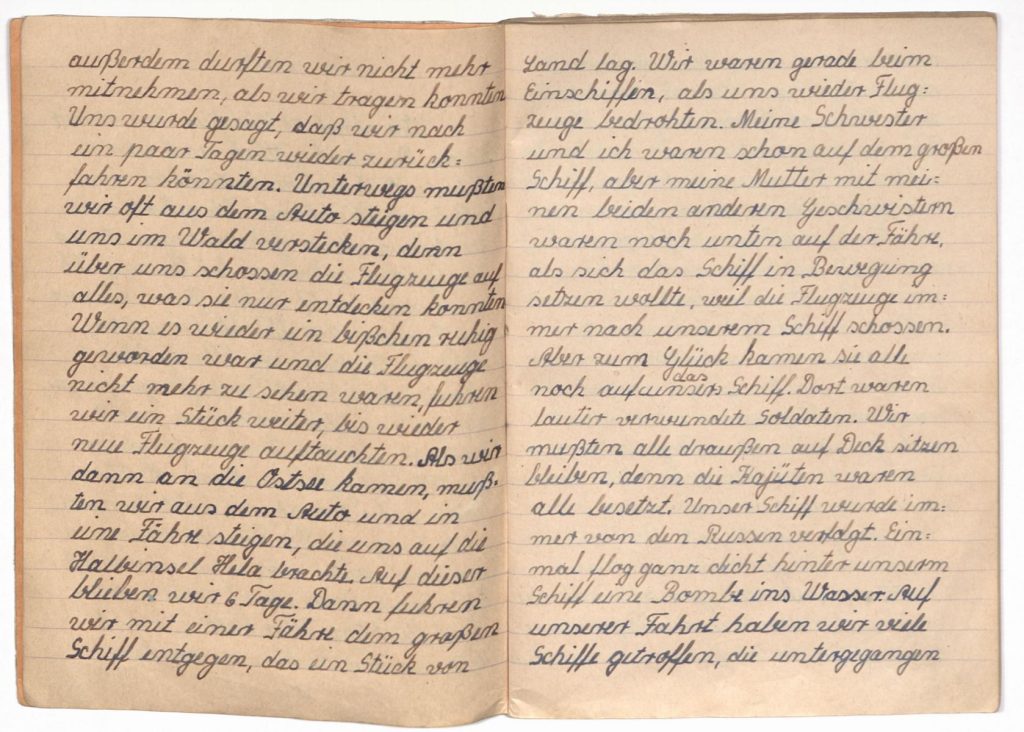 außerdem durften wir nicht mehr
mitnehmen, als wir tragen konnten
Uns wurde gesagt, daß wir nach
ein paar Tagen wieder zurück=
fahren könnten. Unterwegs mußten
wir oft aus dem Auto steigen und
uns im Wald verstecken, denn
über uns schossen die Flugzeuge auf
alles, was sie nur entdecken konnten
Wenn es wieder ein bißchen ruhig
geworden war und die Flugzeuge
nicht mehr zu sehen waren, fuhren
wir ein Stück weiter, bis wieder
neue Flugzeuge auftauchten. Als wir
dann an die Ostsee kamen, muß=
ten wir aus dem Auto und in
eine Fähre steigen, die uns auf die
Halbinsel Hela brachte. Auf dieser
blieben wir 6 Tage. Dann fuhren
wir mit einer Fähre dem großen
Schiff entgegen, das ein Stück von
Land lag. Wir waren gerade beim
Einschiffen, als uns wieder Flug=
zeuge bedrohten. Meine Schwester
und ich waren schon auf dem großen
Schiff, aber meine Mutter mit mei=
nen beiden anderen Geschwistern
waren noch unten auf der Fähre,
als sich das Schiff in Bewegung
setzen wollte, weil die Flugzeuge im=
mer nach unserem Schiff schossen.
Aber zum Glück kamen sie alle
noch auf das Schiff. Dort waren
lauter verwundete Soldaten. Wir
mußten alle draußen auf Deck sitzen
bleiben, denn die Kajüten waren
alle besetzt. Unser Schiff wurde im=
mer von den Russen verfolgt. Ein=
mal flog ganz dicht hinter unserm
Schiff eine Bombe ins Wasser. Auf
unserer Fahrt haben wir viele
Schiffe getroffen, die untergegangen